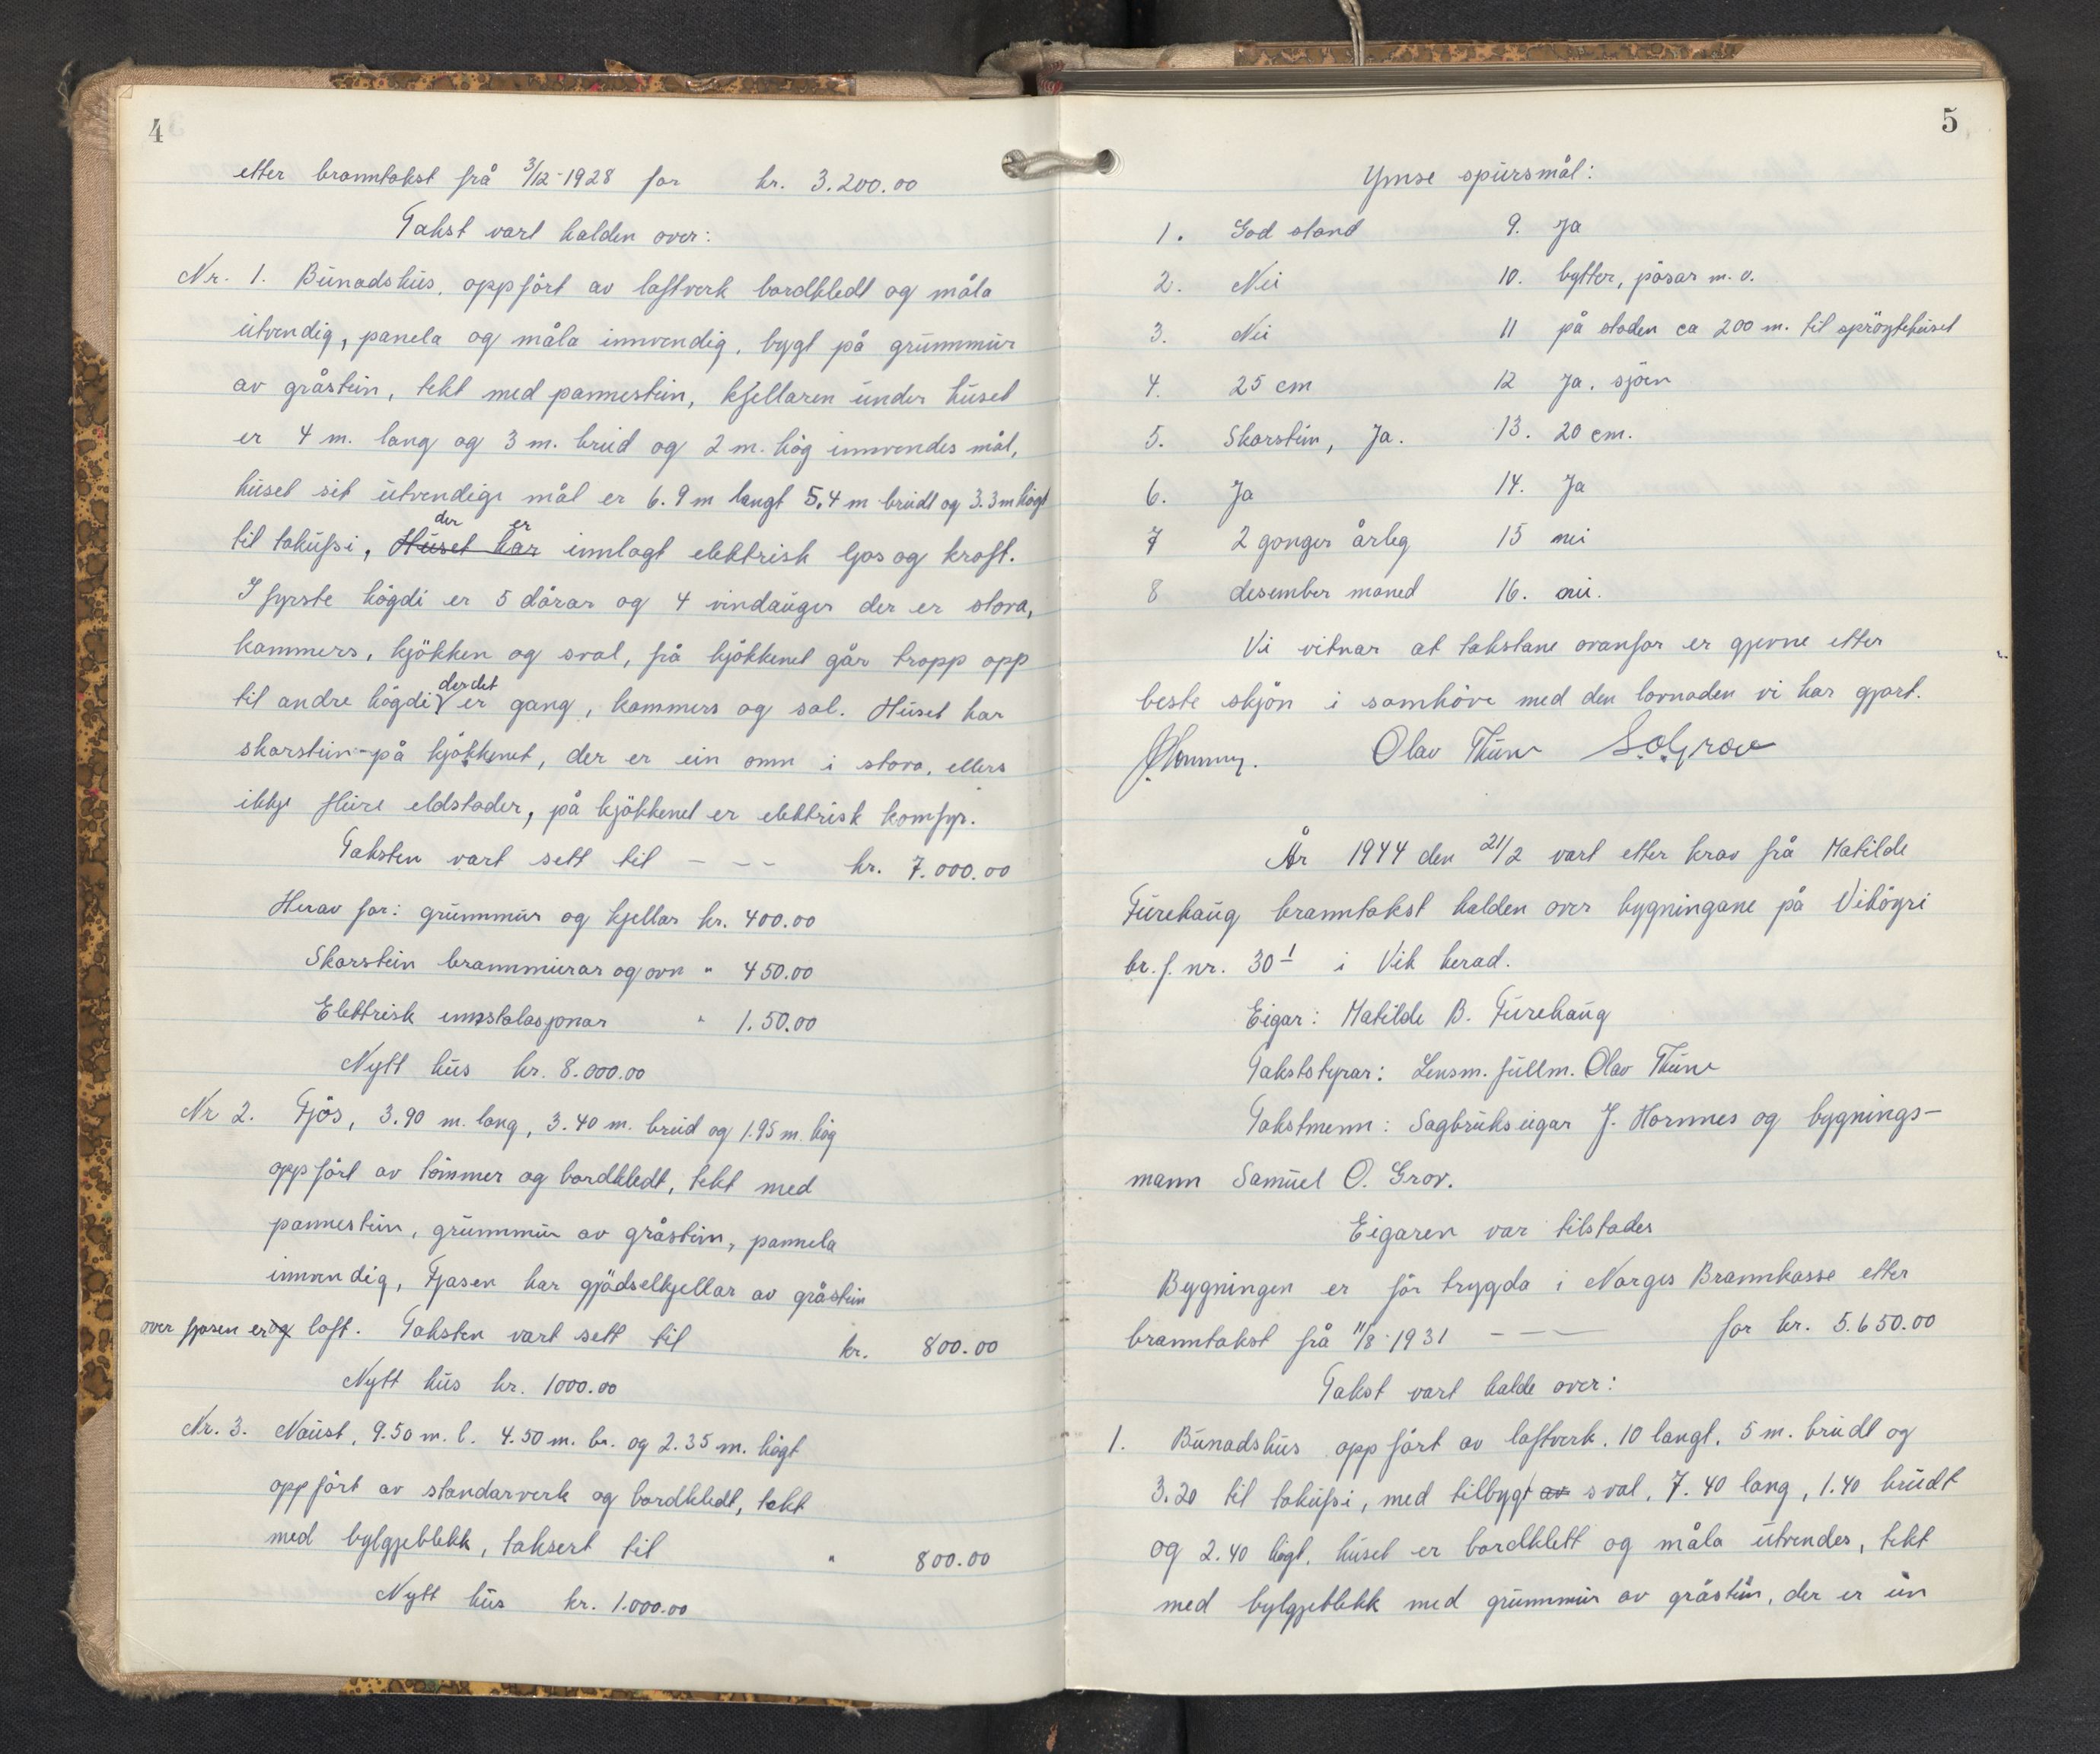 4
etter branntakst frå 3/12-1928 for kr. 3.200.00
Takst vart halden over:
Nr. 1. Bunadshus, oppført av laftverk bordkledt og måla
utvendig, panela og måla innvendig, bygt på grunnmur
av gråstein, tekt med pannestein, kjellaren under huset
er 4 m. lang og 3 m. breid og 2 m. høg innvendes mål,
huset sit utvendige mål er 6.9 m langt 5,4 m breidt og 3.3 m høgt
til takufsi, Huset har der er innlagt elektrisk ljos og kraft.
I fyrste høgdi er 5 dørar og 4 vindauger der er stova,
kammers, kjøkken og sval, frå kjøkkenet går tropp opp
til andre høgdi der det er gang, kammers og sal. Huset har
skorstein på kjøkkenet, der er ein omn i stova, ellers
ikkje fleire eldstader, på kjøkkenet er elektrisk komfyr.
Taksten vart sett til - - - kr. 7.000.00
Herav for: grunnmur og kjellar kr. 400.00
Skorstein brannmurar og ovn " 450.00
Elektrisk innstalasjonar " 1.50.00
Nytt hus kr. 8.000.00
Nr 2. Fjøs, 3.90 m. lang, 3.40 m. breid og 1.95 m. høg
oppført av tømmer og bordkledt, tekt med
pannestein, grunnmur av gråstein, pannela
innvendig, Fjøsen har gjødselkjellar av gråstein
over fjøsen er og loft. Taksten vart sett til kr. 800.00
Nytt hus kr. 1000.00
Nr. 3. Naust, 9.50 m. l. 4.50 m. br. og 2.35 m. høgt
oppført av standarverk og bordkledt, tekt
med bylgjeblekk, taksert til " 800.00
Nytt hus kr. 1.000.00
5
Ymse spursmål:
1. God stand 9. Ja
2. Nei 10. bytter, pøsar m. v.
3. Nei 11 på staden ca 200 m. til sprøytehuset
4. 25 cm 12 Ja, sjøen
5. Skorstein, Ja. 13. 20 cm.
6. Ja 14. Ja
7 2 gonger årleg 15 nei
8 desember månad 16. nei.
Vi vitnar at takstane ovanfor er gjevne etter
beste skjøn i samhøve med den lovnaden vi har gjort.
J. Hornnes. Olav Thune S. O. Grov
År 1944 den 21/2 vart etter krav frå Matilde
Furehaug branntakst halden over bygningane på Vikøyri
br. f. nr. 30 1 i Vik herad.
Eigar: Matilde B. Furehaug
Takststyrar: Lensm. fullm. Olav Thune
Takstmenn: Sagbrukseigar J. Hornnes og bygnings-
mann Samuel O. Grov.
Eigaren var tilstades
Bygningen er før trygda i Norges Brannkasse etter
branntakst frå 11/8-1931 - - - for kr. 5.650.00
Takst vart halde over:
1. Bunadshus oppført av laftverk, 10 langt, 5 m. breidt og
3.20 til takufsi, med tilbygt av sval, 7.40 lang, 1.40 breidt
og 2.40 høgt, huset er bordklett og måla utvendes, tekt
med bylgjeblekk med grunnmur av gråstein, der er ein